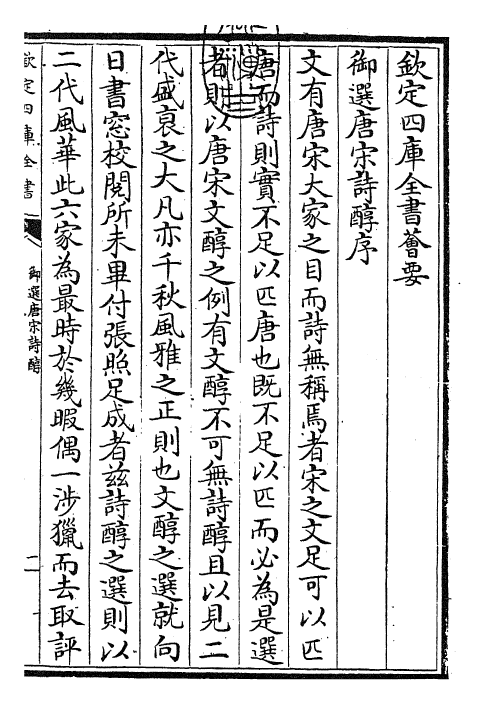 欽定四庫全書薈要
御選唐宋詩醇序
文有唐宋大家之目而詩無稱焉者宋之文足可以匹
唐而詩則實不足以匹唐也既不足以匹而必為是選
者則以唐宋文醇之例有文醇不可無詩醇且以見二
代盛衰之大凡亦千秋風雅之正則也文醇之選就向
日書窓校閱所未畢付張照足成者茲詩醇之選則以
二代風華此六家為最時於幾暇偶一涉獵而去取評
欽定四庫全書
御選唐宋詩醇
二